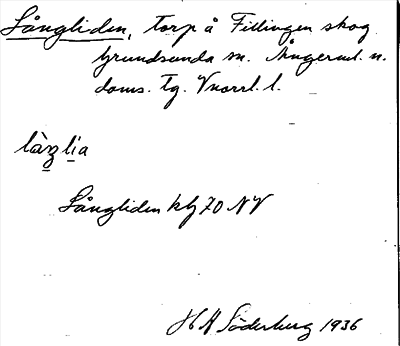 Långliden, torp å Fillingen skog
Grundsunda sn. Ångerml. n.
doms. tg. Vnorrl. l.
làŋlia
Långliden kbl 70 NV
H A Söderberg 1936